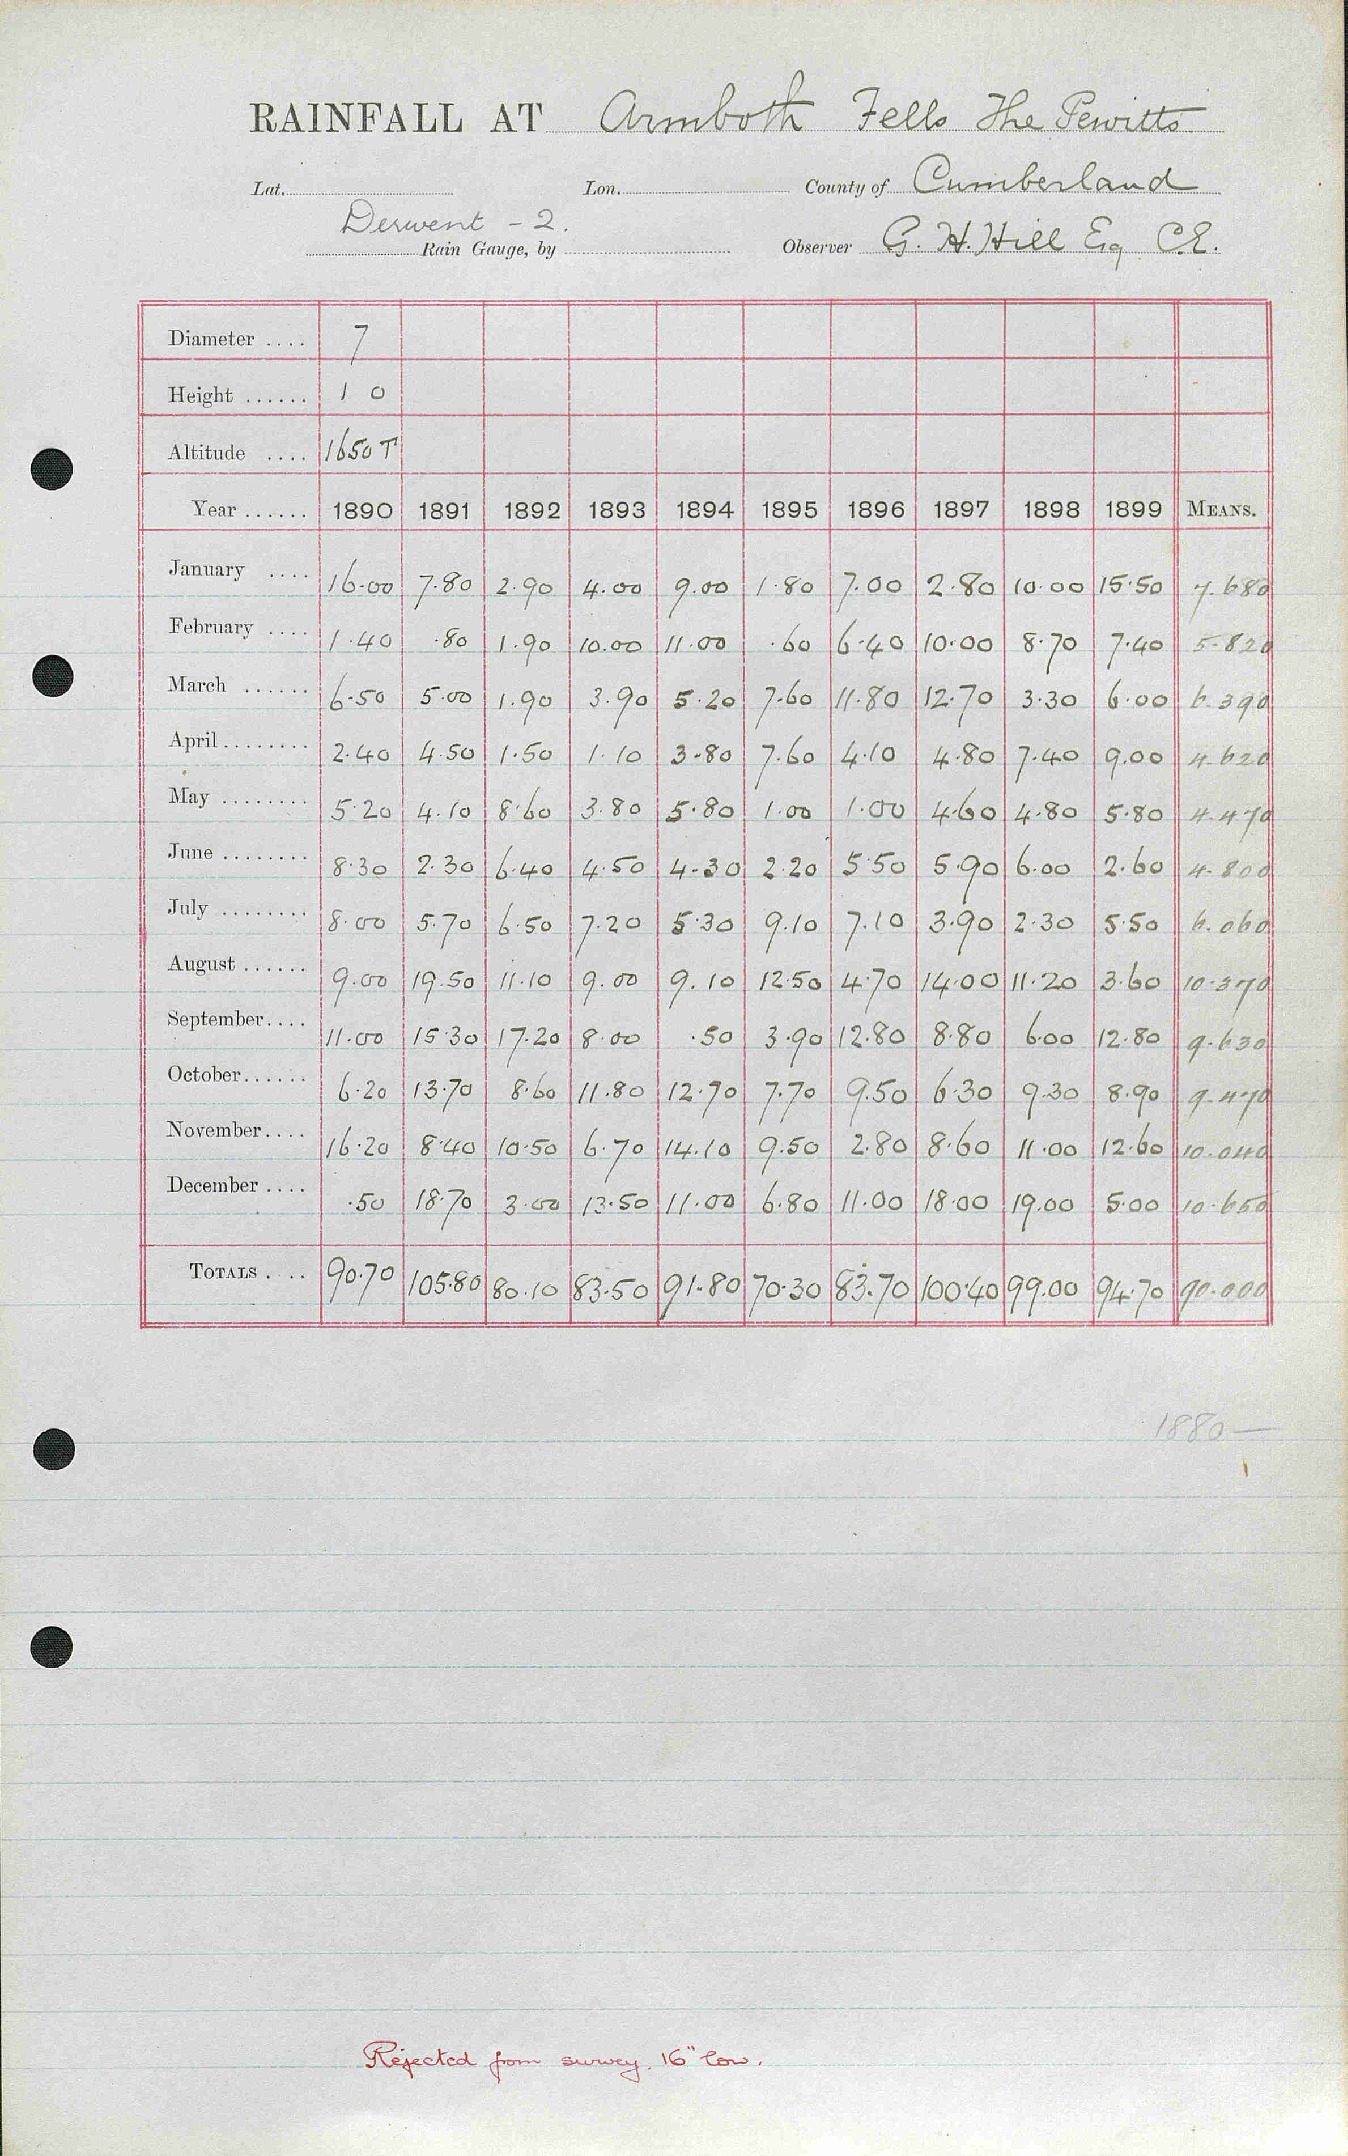 RAINFALL AT Armboth Fells The Pewitts
Lat. Lon. County of Cumberland
Derwent - 2.
Rain Gauge, by Observer G. H. Hill Esq C.E.
Diameter .... 7
Height ...... 1 0
Altitude .... 1650 T
Year ...... 1890 1891 1892 1893 1894 1895 1896 1897 1898 1899 MEANS.
January .... 16.00 7.80 2.90 4.00 9.00 1.80 7.00 2.80 10.00 15.50 7.680
February .... 1.40 .80 1.90 10.00 11.00 .60 6.40 10.00 8.70 7.40 5.820
March ...... 6.50 5.00 1.90 3.90 5.20 7.60 11.80 12.70 3.30 6.00 6.390
April ........ 2.40 4.50 1.50 1.10 3.80 7.60 4.10 4.80 7.40 9.00 4.620
May ........ 5.20 4.10 8.60 3.80 5.80 1.00 1.00 4.60 4.80 5.80 4.470
June ........ 8.30 2.30 6.40 4.50 4.30 2.20 5.50 5.90 6.00 2.60 4.800
July ........ 8.00 5.70 6.50 7.20 5.30 9.10 7.10 3.90 2.30 5.50 6.060
August ...... 9.00 19.50 11.10 9.00 9.10 12.50 4.70 14.00 11.20 3.60 10.370
September .... 11.00 15.30 17.20 8.00 .50 3.90 12.80 8.80 6.00 12.80 9.630
October ...... 6.20 13.70 8.60 11.80 12.70 7.70 9.50 6.30 9.30 8.90 9.470
November .... 16.20 8.40 10.50 6.70 14.10 9.50 2.80 8.60 11.00 12.60 10.040
December .... .50 18.70 3.00 13.50 11.00 6.80 11.00 18.00 19.00 5.00 10.650
TOTALS .... 90.70 105.80 80.10 83.50 91.80 70.30 83.70 100.40 99.00 94.70 90.000
1880—
Rejected from survey. 16" low.